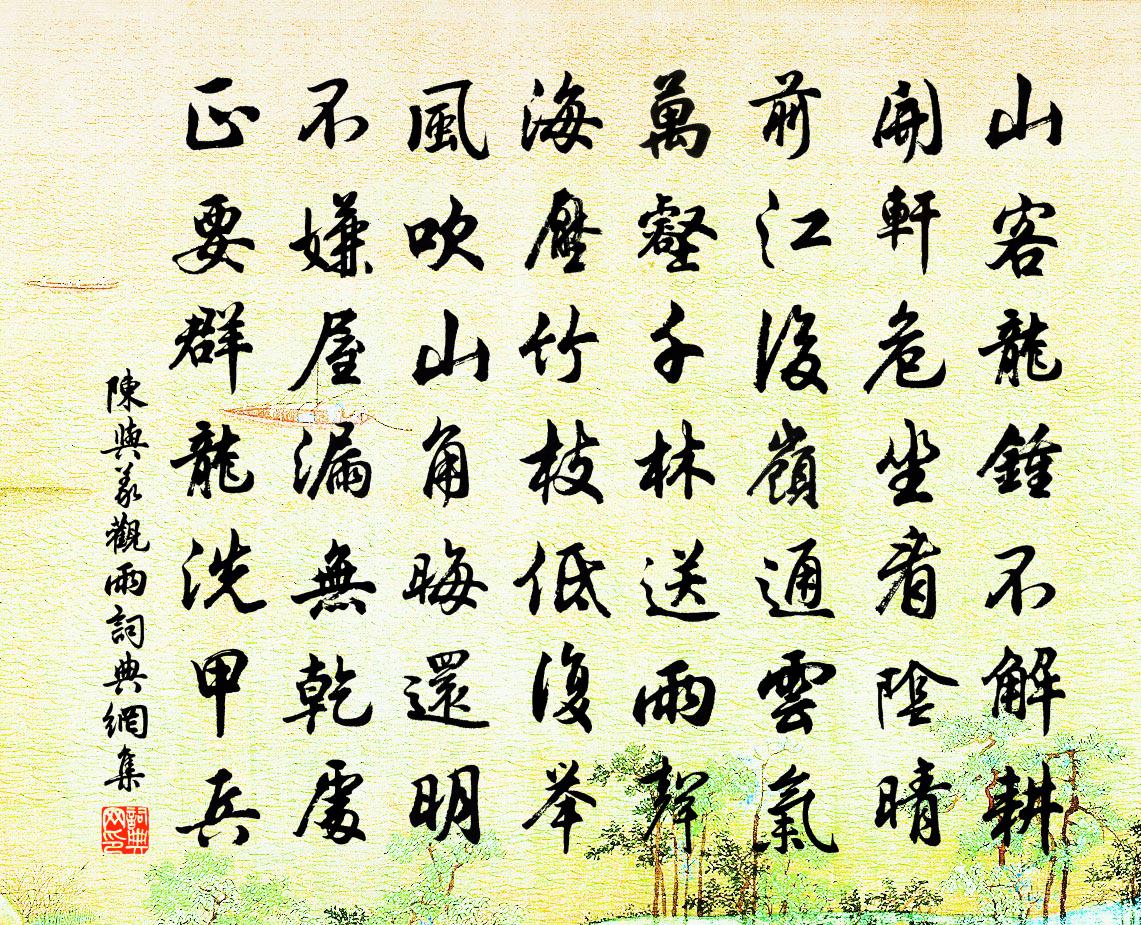 山客龍鍾不解耕
開軒危坐看陰晴
前江後嶺通雲氣
萬壑千林送雨聲
海壓竹枝低復举
風吹山角晦還明
不嫌屋漏無乾處
正要群龍洗甲兵
陳與义觀雨詞典網集
詞典网印